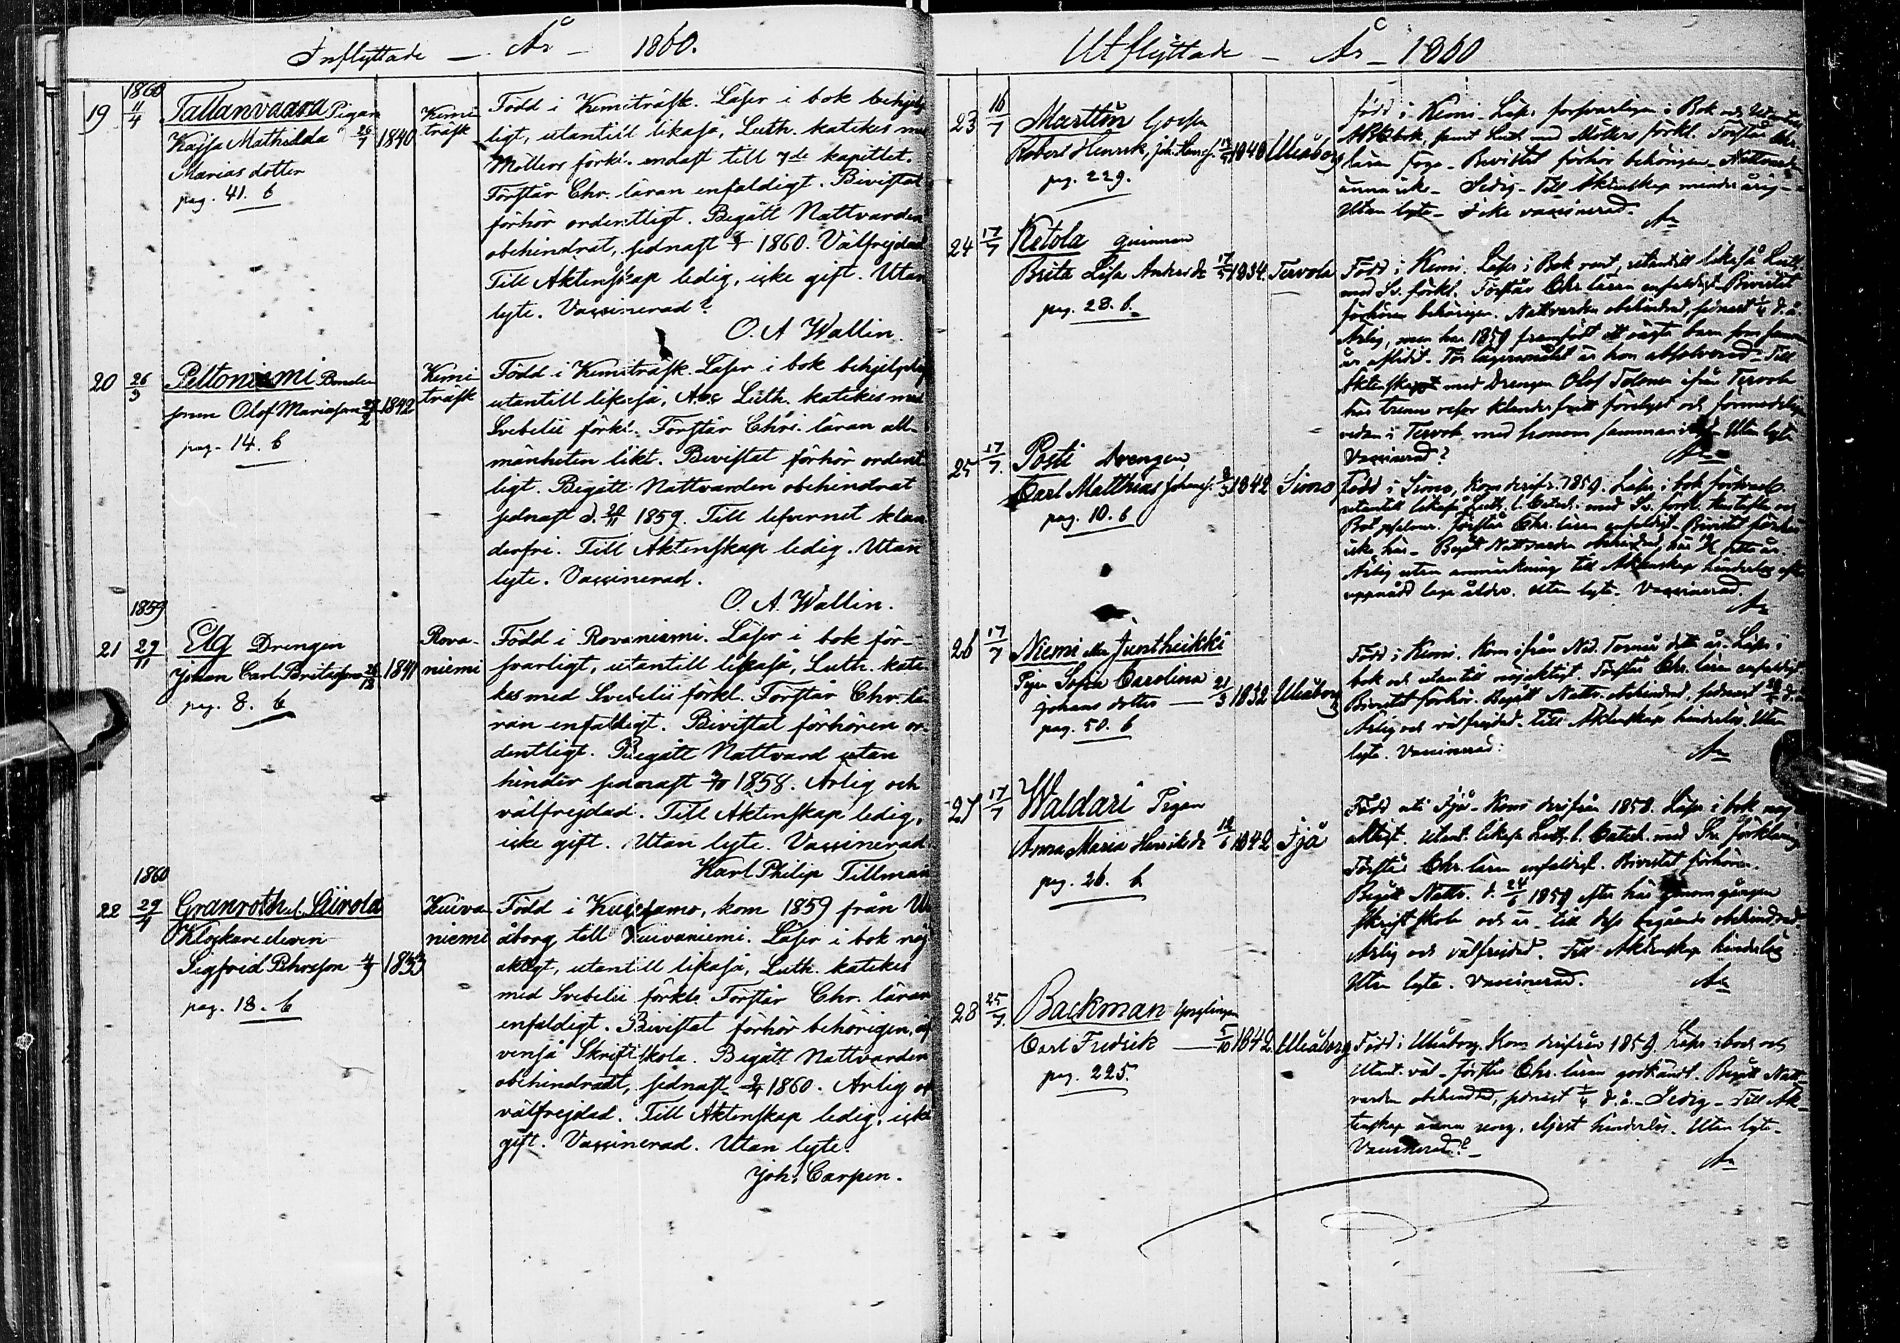 Inflyttade — År — 1860.
19 1860 11/4 Tallanvaara Pigan
Kajsa Mathilda 26/7 1840
Mariasdotter
pag. 41. b
Kemi
träsk
Född i Kemiträsk. Läser i bok behjelp
ligt, utantill likaså, Luth. katekes med
Möllers förkl. endast till 7de kapitlet.
Förstår Chr. läran enfaldigt. Bivistat
förhör ordentligt. Begått Nattvarden
obehindrat, sednast 1860. Välfrejdad
Till Äktenskap ledig, icke gift. Utan
lyte. Vaccinerad?
O. A Wallin.
20 26/3 Peltoniemi Bonde
sonen Olof Mariasson 1842
pag. 14. b
Kemi
träsk
Född i Kemiträsk. Läser i bok behjelpligt
utantill likaså, Abc Luth. katekes med
Svebelii förkl. Förstår Chri. läran all-
mänheten likt. Bevistat förhör ordent
ligt. Begått Nattvarden obehindrat
sednast d. 1859. Till lefvernet klan
derfri. Till Äktenskap ledig. Utan
lyte. Vaccinerad.
O. A. Wallin.
1859
21 29/11 Elg Drengen
Johan Carl Britasson 1841
pag. 8. b
Rova-
niemi
Född i Rovaniemi. Läser i bok för-
svarligt, utantill likaså, Luth. kate
kes med Svebelii förkl. Förstår Chr. lä
ran enfaldigt. Bevistat förhören or-
dentligt. Begått Nattvard utan
hinder sednast 1858. Ärlig och
välfrejdad. Till Äktenskap ledig,
icke gift. Utan lyte. Vaccinerad.
Karl Philip Tillman
1860
22 29/4 Granroth el. Siirola
Klockare eleven
Sigfrid Pehrsson 4/9 1833
pag. 18. b
Kuiva
niemi
Född i Kuusamo, kom 1859 från Ule
åborg till Kuivaniemi. Läser i bok nöj
aktigt, utantill likaså, Luth. katekes
med Svebelii förkl. Förstår Chr. läran
enfaldigt. Bevistat förhör behörigen, äf
venså Skriftskola. Begått Nattvarden
obehindradt, sednast 1860. Ärlig och
välfrejdad. Till Äktenskap ledig, icke
gift. Vaccinerad. Utan lyte.
Joh. Carpen.
Utflyttade — År — 1860
23 16/7 Martin Gossen
Robert Henrik, Joh. Hensson 1848 Uleåborg
pag. 229.
född i Kemi. Läser försvarligen i Bok och utantill
Abcbok, samt Luth. med Möllers förkl. Förstår Chr.
läran föga. Bevistat förhör behörigen. Nattvarden
ännu icke. Ledig. Till Äktenskap minderårig
Utan lyte. Icke vaccinerad.
24 17/7 Ketola quinnan
Brita Lisa Andersdr 17/5 1834. Tervola
pag. 28. b.
Född i Kemi. Läser i Bok rent, utantill likaså Luth.
med Sv. förkl. Förstår Chr. läran enfaldigt. Bevistat
förhören behörigen. Nattvarden obehindrad, sednast d. å.
Ärlig, men har 1859 framfödt ett oägta barn som sedan
är aflidit. För lägersmålet är hon absolverad. Till
Äktenskapet med Drengen Olof Tolonen ifrån Tervola
här trenne resor klanderfritt förelyst och förmodeligen
redan i Tervola med honom sammanvigd. Utan lyte
Vaccinerad?
25 17/7 Posti Drengen
Carl Matthias Johanss. 1842 Simo
pag. 10. b
Född i Simo, kom derifr. 1859. Läser i bok försvarl.
utantill likaså Luth. l. Catech. med Sv. förkl. Hustafla och
Bot psalmer. Förstår Chr. läran enfaldigt. Bevistat förhör
icke här. Begått Nattvarden obehindrad, här detta år.
Ärlig utan anmärkning till Äktenskap hinderlös efter
uppnådd laga ålder. utan lyte. Vaccinerad.
26 17/7 Niemi eller Juntheikki
Pigan Sofia Carolina
Johansdotter — 21/3 1832 Uleåborg
pag. 50. b
Född i Kemi. Kom ifrån Ned. Torneå detta år. Läser i
bok och utantill nöjaktigt. Förstår Chr. läran enfaldigt
Bevistat förhör. Begått Nattv. obehindrad, sednast d. å.
Ärlig och välfrejdad. Till Äktenskap hinderlös. Utan
lyte. Vaccinerad.
27 17/7 Waldari Pigan
Anna Maria Henriksdr 1842 Ijå
pag. 26. b
Född uti Ijå. Kom derifrån 1858. Läser i bok nöj
aktigt. utant. likaså Luth. l. Catech. med Sv. förklaring
Förstår Chr. läran enfaldigt. Bevistat förhören.
Begått Nattv. d. 24/6 1859 efter här genomgången
skriftskola och är till dess begående obehindrad.
Ärlig och välfrejdad. Till Äktenskap hinderlös
Utan lyte. Vaccinerad.
28 25/7 Backman Ynglingen
Carl Fredrik — 5/10 1842 Uleåborg
pag. 225.
Född i Uleåborg. Kom derifrån 1859. Läser i bok och
utant. väl. Förstår Chr. läran godkändt. Begått Natt-
varden obehindrad, sednast d. å. Ledig. Till Äk-
tenskap ännu ung, eljest hinderlös. Utan lyte.
Vaccinerad?